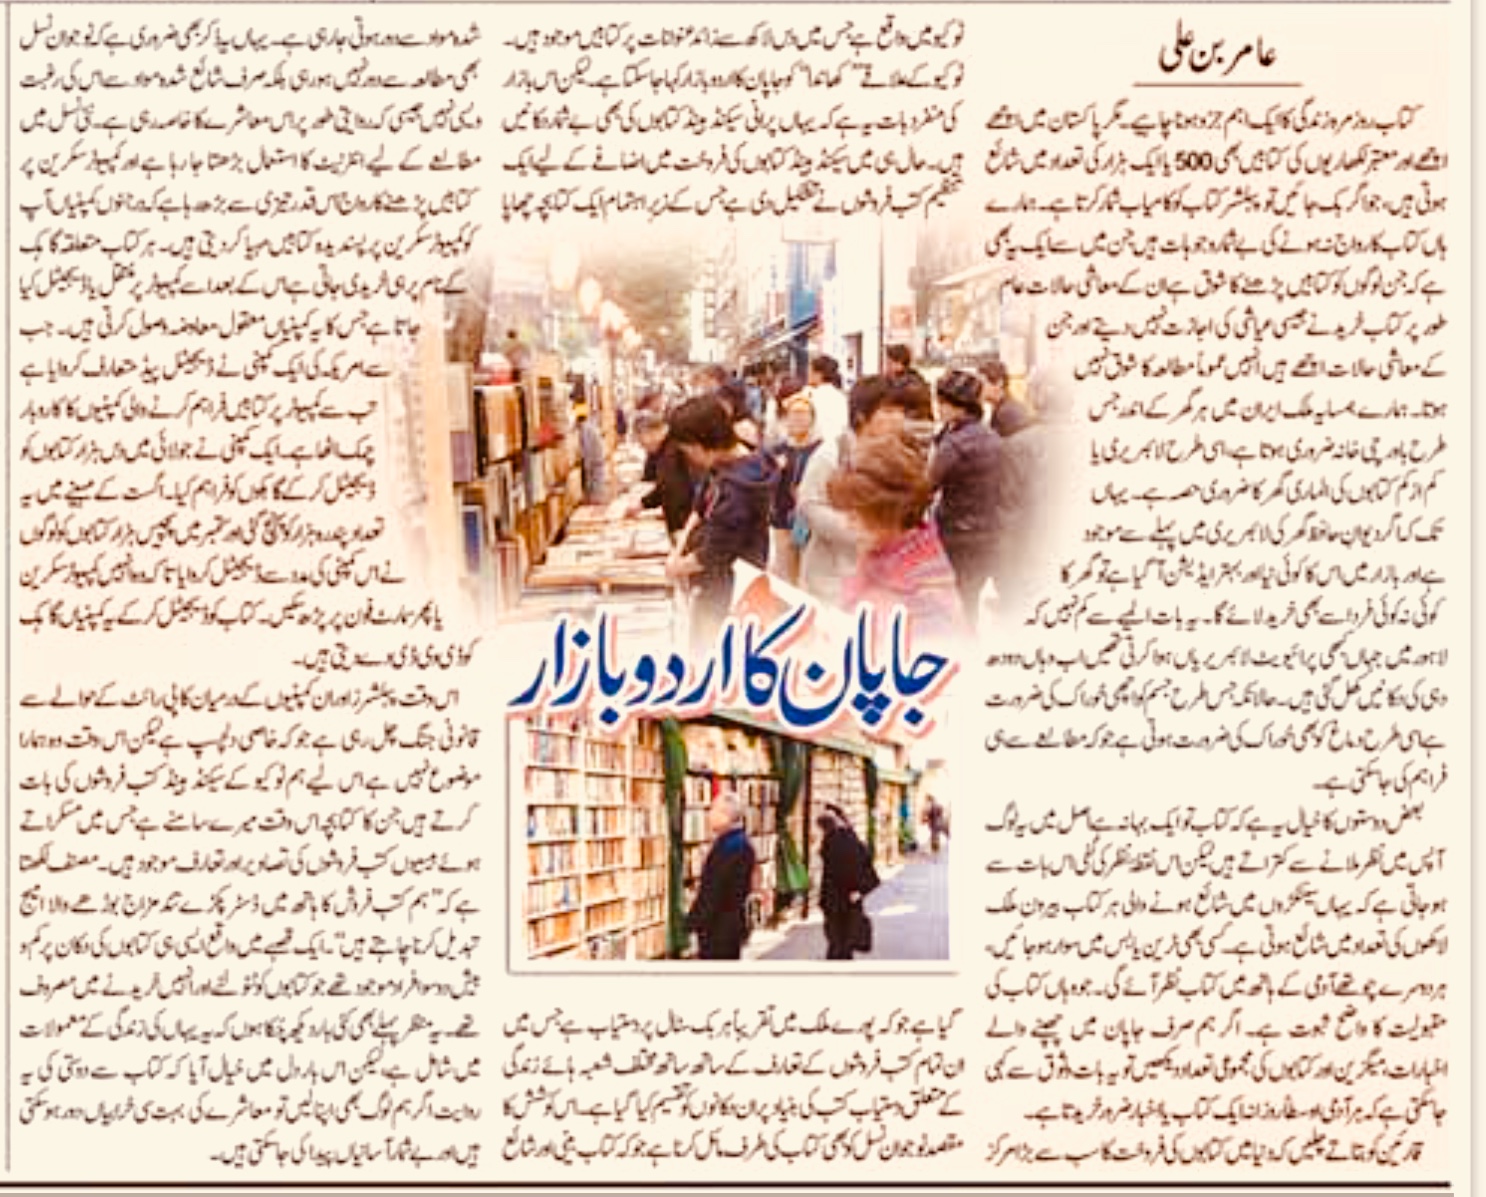 عامر بن علی
کتاب روزمرہ زندگی کا ایک اہم جزو ہونا چاہیے۔ مگر پاکستان میں اچھے
اچھے اور معتبر لکھاریوں کی کتابیں بھی 500 یا ایک ہزار کی تعداد میں شائع
ہوتی ہیں، جو اگر بک جائیں تو پبلشر کتاب کو کامیاب شمار کرتا ہے۔ ہمارے
ہاں کتاب کا رواج نہ ہونے کی بے شمار وجوہات ہیں جن میں سے ایک یہ بھی
ہے کہ جن لوگوں کو کتابیں پڑھنے کا شوق ہے ان کے معاشی حالات عام
طور پر کتاب خریدنے جیسی عیاشی کی اجازت نہیں دیتے اور جن
کے معاشی حالات اچھے ہیں انہیں عموماً مطالعہ کا شوق نہیں
ہوتا۔ ہمارے ہمسایہ ملک ایران میں ہر گھر کے اندر جس
طرح باورچی خانہ ضروری ہوتا ہے، اسی طرح لائبریری یا
کم از کم کتابوں کی الماری گھر کا ضروری حصہ ہے۔ یہاں
تک کہ اگر دیوان حافظ گھر کی لائبریری میں پہلے سے موجود
ہے اور بازار میں اس کا کوئی نیا اور بہتر ایڈیشن آ گیا ہے تو گھر کا
کوئی نہ کوئی فرد اسے بھی خرید لائے گا۔ یہ بات المیے سے کم نہیں کہ
لاہور میں جہاں کبھی پرائیویٹ لائبریریاں ہوا کرتی تھیں اب وہاں دودھ
دہی کی دکانیں کھل گئی ہیں۔ حالانکہ جس طرح جسم کو اچھی خوراک کی ضرورت
ہے اسی طرح دماغ کو بھی خوراک کی ضرورت ہوتی ہے جو کہ مطالعے سے ہی
فراہم کی جا سکتی ہے۔
بعض دوستوں کا خیال یہ ہے کہ کتاب تو ایک بہانہ ہے اصل میں یہ لوگ
آپس میں نظر ملانے سے کتراتے ہیں لیکن اس نقطہ نظر کی نفی اس بات سے
ہو جاتی ہے کہ یہاں سینکڑوں میں شائع ہونے والی ہر کتاب بیرون ملک
لاکھوں کی تعداد میں شائع ہوتی ہے۔ کسی بھی ٹرین یا بس میں سوار ہو جائیں،
ہر دوسرے چوتھے آدمی کے ہاتھ میں کتاب نظر آئے گی۔ جو وہاں کتاب کی
مقبولیت کا واضح ثبوت ہے۔ اگر ہم صرف جاپان میں چھپنے والے
اخبارات، میگزین اور کتابوں کی مجموعی تعداد دیکھیں تو یہ بات وثوق سے کہی
جا سکتی ہے کہ ہر آدمی اوسطاً روزانہ ایک کتاب یا اخبار ضرور خریدتا ہے۔
قارئین کو بتاتے چلیں کہ دنیا میں کتابوں کی فروخت کا سب سے بڑا مرکز
ٹوکیو میں واقع ہے جس میں دس لاکھ سے زائد عنوانات پر کتابیں موجود ہیں۔
ٹوکیو کے علاقے "کھاندا" کو جاپان کا اردو بازار کہا جا سکتا ہے۔ لیکن اس بازار
کی منفرد بات یہ ہے کہ یہاں پرانی سیکنڈ ہینڈ کتابوں کی بھی بے شمار دکانیں
ہیں۔ حال ہی میں سیکنڈ ہینڈ کتابوں کی فروخت میں اضافے کے لیے ایک
تنظیم کتب فروشوں نے تشکیل دی ہے جس کے زیر اہتمام ایک کتابچہ چھاپا
جاپان کا اردو بازار
گیا ہے جو کہ پورے ملک میں تقریباً ہر بک سٹال پر دستیاب ہے جس میں
ان تمام کتب فروشوں کے تعارف کے ساتھ ساتھ مختلف شعبہ ہائے زندگی
کے متعلق دستیاب کتب کی بنیاد پر ان دکانوں کو تقسیم کیا گیا ہے۔ اس کوشش کا
مقصد نوجوان نسل کو بھی کتاب کی طرف مائل کرنا ہے جو کہ کتاب بینی اور شائع
شدہ مواد سے دور ہوتی جا رہی ہے۔ یہاں یہ ذکر بھی ضروری ہے کہ نوجوان نسل
بھی مطالعہ سے دور نہیں ہو رہی بلکہ صرف شائع شدہ مواد سے اس کی رغبت
ویسی نہیں جیسی کہ روایتی طور پر اس معاشرے کا خاصہ رہی ہے۔ نئی نسل میں
مطالعے کے لیے انٹرنیٹ کا استعمال بڑھتا جا رہا ہے اور کمپیوٹر سکرین پر
کتابیں پڑھنے کا رواج اس قدر تیزی سے بڑھ رہا ہے کہ درجنوں کمپنیاں آپ
کو کمپیوٹر سکرین پر پسندیدہ کتابیں مہیا کر دیتی ہیں۔ ہر کتاب متعلقہ گاہک
کے نام پر ہی خریدی جاتی ہے اس کے بعد اسے کمپیوٹر پر منتقل یا ڈیجیٹل کیا
جاتا ہے جس کا یہ کمپنیاں معقول معاوضہ وصول کرتی ہیں۔ جب
سے امریکہ کی ایک کمپنی نے ڈیجیٹل پیڈ متعارف کروایا ہے
تب سے کمپیوٹر پر کتابیں فراہم کرنے والی کمپنیوں کا کاروبار
چمک اٹھا ہے۔ ایک کمپنی نے جولائی میں دس ہزار کتابوں کو
ڈیجیٹل کر کے گاہکوں کو فراہم کیا۔ اگست کے مہینے میں یہ
تعداد پندرہ ہزار کو پہنچ گئی اور ستمبر میں پچیس ہزار کتابوں کو لوگوں
نے اس کمپنی کی مدد سے ڈیجیٹل کروایا تاکہ وہ انہیں کمپیوٹر سکرین
یا پھر سمارٹ فون پر پڑھ سکیں۔ کتاب کو ڈیجیٹل کر کے یہ کمپنیاں گاہک
کو ڈی وی ڈی دے دیتی ہیں۔
اس وقت پبلشرز اور ان کمپنیوں کے درمیان کاپی رائٹ کے حوالے سے
قانونی جنگ چل رہی ہے جو کہ خاصی دلچسپ ہے لیکن اس وقت وہ ہمارا
موضوع نہیں ہے اس لیے ہم ٹوکیو کے سیکنڈ ہینڈ کتب فروشوں کی بات
کرتے ہیں جن کا کتابچہ اس وقت میرے سامنے ہے جس میں مسکراتے
ہوئے بیسیوں کتب فروشوں کی تصاویر اور تعارف موجود ہیں۔ مصنف لکھتا
ہے کہ "ہم کتب فروش کا ہاتھ میں ڈسٹر پکڑے تند مزاج بوڑھے والا امیج
تبدیل کرنا چاہتے ہیں"۔ ایک قصبے میں واقع ایسی ہی کتابوں کی دکان پر کم و
بیش دو سو افراد موجود تھے جو کتابوں کو ٹٹولنے اور انہیں خریدنے میں مصروف
تھے۔ یہ منظر پہلے بھی کئی بار دیکھ چکا ہوں کہ یہ یہاں کی زندگی کے معمولات
میں شامل ہے، لیکن اس بار دل میں خیال آیا کہ کتاب سے دوستی کی یہ
روایت اگر ہم لوگ بھی اپنا لیں تو معاشرے کی بہت سی خرابیاں دور ہو سکتی
ہیں اور بے شمار آسانیاں پیدا کی جا سکتی ہیں۔